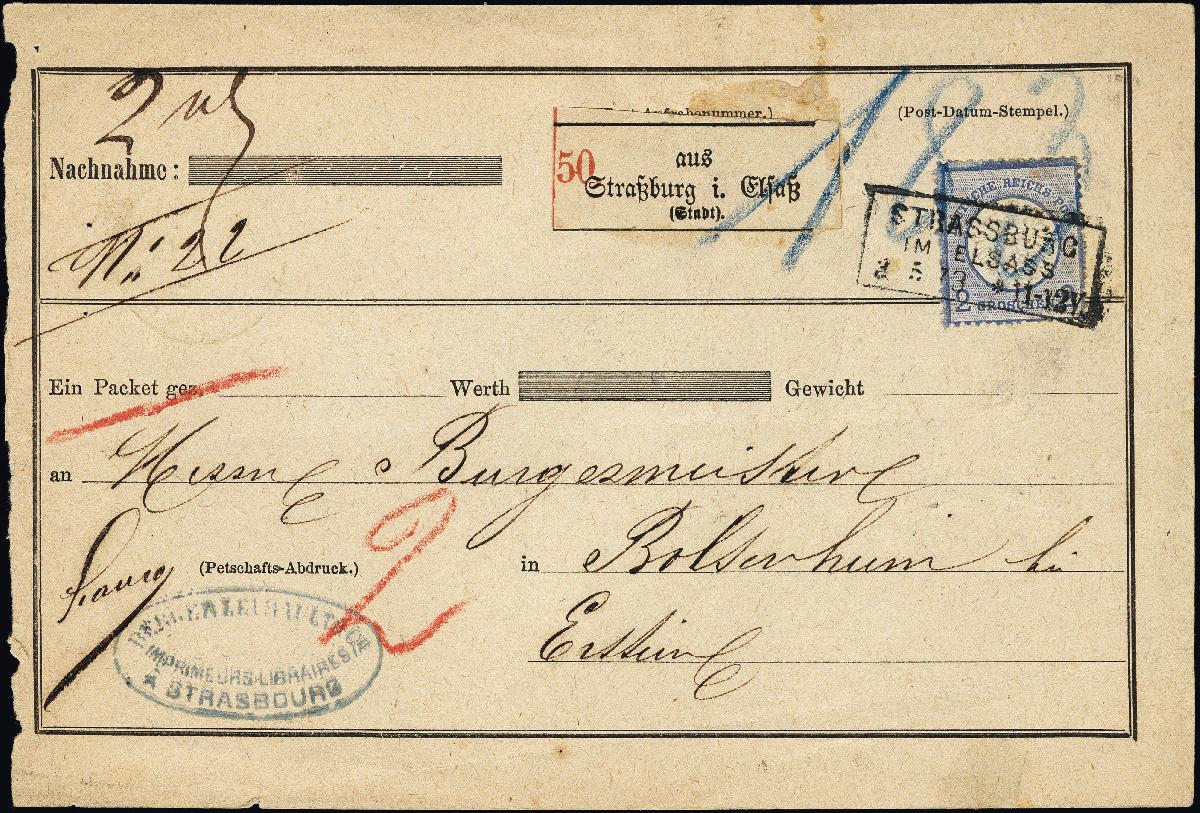 Aufgabenummer.)
(Post-Datum-Stempel.)
Nachnahme:
50
aus
Straßburg i. Elsaß
(Stadt).
No. 22
183
DEUTSCHE REICHS-POST
2 GROSCHEN 2
STRASSBURG
IM ELSASS
3 5 73 * 11-12V
Ein Packet gez. Werth Gewicht
an Herrn Burgermeister
franco
(Petschafts-Abdruck.)
2
in Bolsenheim bei
Erstein
BERGER LEVRAULT & CIE
IMPRIMEURS-LIBRAIRES
À STRASBOURG